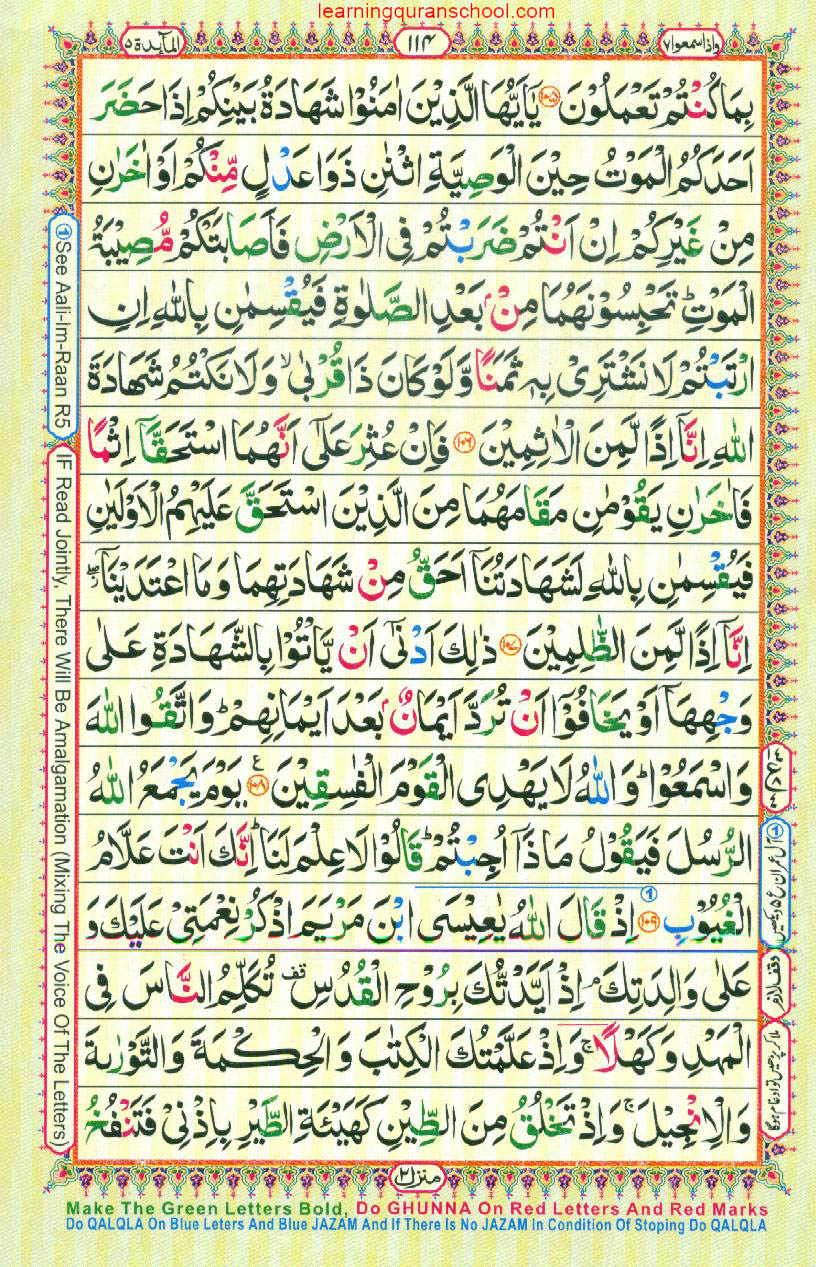 learningquranschool.com
واذاسمعوا۷
۱۱۴
المآىِٕدة۵
بِمَا كُنْتُمْ تَعْمَلُوْنَ ﴿۱۰۵﴾ يٰۤاَيُّهَا الَّذِيْنَ اٰمَنُوْا شَهَادَةُ بَيْنِكُمْ اِذَا حَضَرَ
اَحَدَكُمُ الْمَوْتُ حِيْنَ الْوَصِيَّةِ اثْنٰنِ ذَوَا عَدْلٍ مِّنْكُمْ اَوْ اٰخَرٰنِ
مِنْ غَيْرِكُمْ اِنْ اَنْتُمْ ضَرَبْتُمْ فِى الْاَرْضِ فَاَصَابَتْكُمْ مُّصِيْبَةُ
الْمَوْتِؕ تَحْبِسُوْنَهُمَا مِنْۢ بَعْدِ الصَّلٰوةِ فَيُقْسِمٰنِ بِاللّٰهِ اِنِ
ارْتَبْتُمْ لَا نَشْتَرِىْ بِهٖ ثَمَنًا وَّلَوْ كَانَ ذَا قُرْبٰىۙ وَلَا نَكْتُمُ شَهَادَةَ
اللّٰهِ اِنَّاۤ اِذًا لَّمِنَ الْاٰثِمِيْنَ ﴿۱۰۶﴾ فَاِنْ عُثِرَ عَلٰۤى اَنَّهُمَا اسْتَحَقَّاۤ اِثْمًا
فَاٰخَرٰنِ يَقُوْمٰنِ مَقَامَهُمَا مِنَ الَّذِيْنَ اسْتَحَقَّ عَلَيْهِمُ الْاَوْلَيٰنِ
فَيُقْسِمٰنِ بِاللّٰهِ لَشَهَادَتُنَاۤ اَحَقُّ مِنْ شَهَادَتِهِمَا وَمَا اعْتَدَيْنَاۤ ۖ
اِنَّاۤ اِذًا لَّمِنَ الظّٰلِمِيْنَ ﴿۱۰۷﴾ ذٰلِكَ اَدْنٰۤى اَنْ يَّاْتُوْا بِالشَّهَادَةِ عَلٰى
وَجْهِهَاۤ اَوْ يَخَافُوْۤا اَنْ تُرَدَّ اَيْمَانٌۢ بَعْدَ اَيْمَانِهِمْؕ وَاتَّقُوا اللّٰهَ
وَاسْمَعُوْاؕ وَاللّٰهُ لَا يَهْدِى الْقَوْمَ الْفٰسِقِيْنَ ﴿۱۰۸﴾ ع يَوْمَ يَجْمَعُ اللّٰهُ
الرُّسُلَ فَيَقُوْلُ مَاذَاۤ اُجِبْتُمْؕ قَالُوْا لَا عِلْمَ لَنَاؕ اِنَّكَ اَنْتَ عَلَّامُ
الْغُيُوْبِ ﴿۱۰۹﴾ ① اِذْ قَالَ اللّٰهُ يٰعِيْسَى ابْنَ مَرْيَمَ اذْكُرْ نِعْمَتِىْ عَلَيْكَ وَ
عَلٰى وَالِدَتِكَۘ اِذْ اَيَّدْتُّكَ بِرُوْحِ الْقُدُسِ قف تُكَلِّمُ النَّاسَ فِى
الْمَهْدِ وَكَهْلًاۚ وَاِذْ عَلَّمْتُكَ الْكِتٰبَ وَالْحِكْمَةَ وَالتَّوْرٰىةَ
وَالْاِنْجِيْلَۚ وَاِذْ تَخْلُقُ مِنَ الطِّيْنِ كَهَيْـَٔةِ الطَّيْرِ بِاِذْنِىْ فَتَنْفُخُ
① See Aali-Im-Raan R5
IF Read Jointly, There Will Be Amalgamation (Mixing The Voice Of The Letters)
وقف لازم
منزل۲
Make The Green Letters Bold, Do GHUNNA On Red Letters And Red Marks
Do QALQLA On Blue Leters And Blue JAZAM And If There Is No JAZAM In Condition Of Stoping Do QALQLA